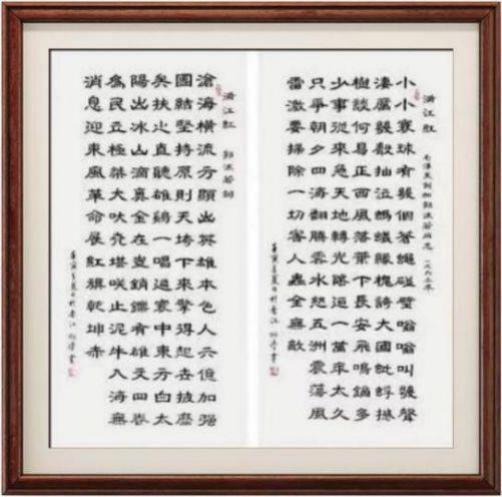 滿江紅 毛澤東詞和郭沫若同志 一九六三年
小小寰球有幾個蒼蠅碰壁嗡嗡叫幾聲
凄厲幾聲抽泣螞蟻緣槐誇大國蚍蜉撼
樹談何易正西風落葉下長安飛鳴鏑多
少事從來急天地轉光陰迫一萬年太久
只爭朝夕四海翻騰雲水怒五洲震蕩風
雷激要掃除一切害人蟲全無敵
滿江紅 郭沫若詞
滄海橫流方顯出英雄本色人六億加強
團結堅持原則天垮下來擎得起世披靡
矣扶之直聽雄鷄一唱遍寰中東方白太
陽出冰山滴真金在豈銷鑠有雄文四卷
為民立極桀犬吠堯堪笑止泥牛入海無
消息迎東風革命展紅旗乾坤赤